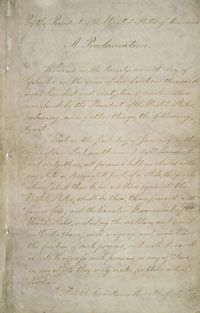 By the President of the United States of America:
A Proclamation.
Whereas, on the twenty-second day of
September, in the year of our Lord one thousand
eight hundred and sixty two, a proclamation
was issued by the President of the United States,
containing, among other things, the following,
to wit:
"That on the first day of January, in the
year of our Lord one thousand eight hundred
and sixty-three, all persons held as slaves within
any State or designated part of a State, the people
whereof shall then be in rebellion against the
United States, shall be then, thenceforward, and
forever free; and the Executive Government of the
United States, including the military and naval
authority thereof, will recognize and maintain
the freedom of such persons, and will do no act
or acts to repress such persons, or any of them,
in any efforts they may make for their actual
freedom.
"That the Executive will, on the first